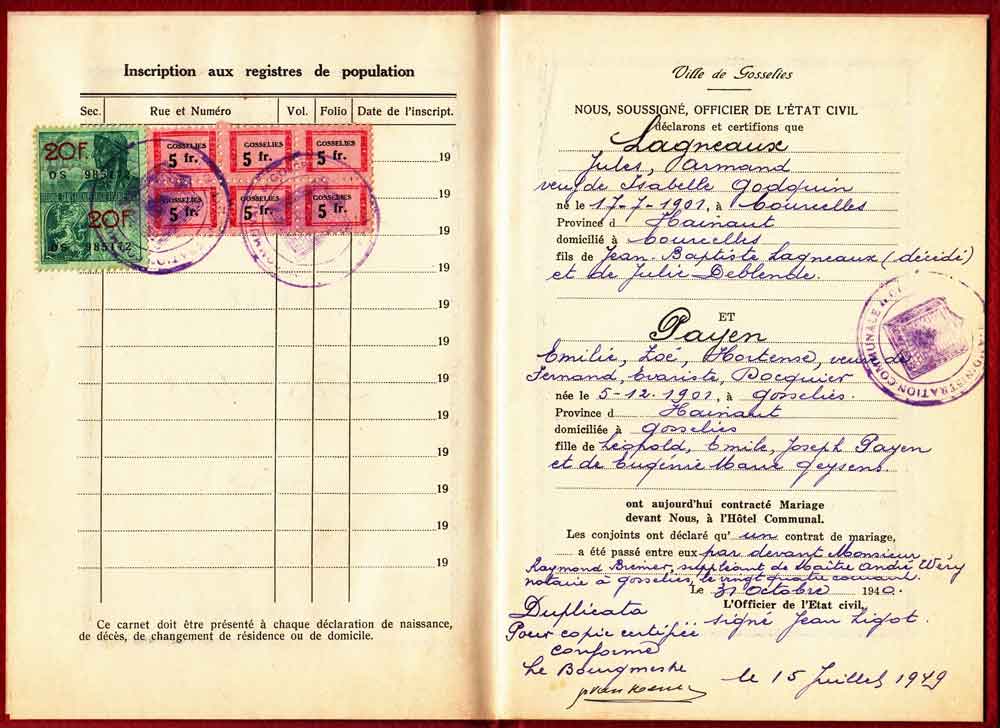 Inscription aux registres de population
Sec. Rue et Numéro Vol. Folio Date de l'inscript.
20F.
DS 985172
20F
DS 985172
GOSSELIES 5 fr. GOSSELIES 5 fr. GOSSELIES 5 fr.
GOSSELIES 5 fr. GOSSELIES 5 fr. GOSSELIES 5 fr.
19
19
19
19
19
19
19
19
19
19
19
19
Ce carnet doit être présenté à chaque déclaration de naissance,
de décès, de changement de résidence ou de domicile.
Ville de Gosselies
NOUS, SOUSSIGNÉ, OFFICIER DE L'ÉTAT CIVIL
déclarons et certifions que
Lagneaux
Jules, Armand
veuf de Isabelle Godquin
né le 17-7-1901, à Courcelles
Province d Hainaut
domicilié à Courcelles
fils de Jean-Baptiste Lagneaux (décédé)
et de Julie Deblende.
ET
Payen
Emilie, Zoé, Hortense, veuve de
Fernand, Evariste, Docquier
née le 5-12-1901, à Gosselies.
Province d Hainaut
domiciliée à Gosselies
fille de Léopold, Emile, Joseph Payen
et de Eugénie Marie Geysens.
ADMINISTRATION COMMUNALE
ont aujourd'hui contracté Mariage
devant Nous, à l'Hôtel Communal.
Les conjoints ont déclaré qu' un contrat de mariage,
a été passé entre eux par devant Monsieur
Raymond Brenier, suppléant de Maître André Wéry
notaire à Gosselies, le vingt quatre courant.
Le 31 Octobre 1940.
L'Officier de l'Etat civil,
signé Jean Ligot.
Duplicata
Pour copie certifiée
conforme
Le Bourgmestre
le 15 Juillet 1949